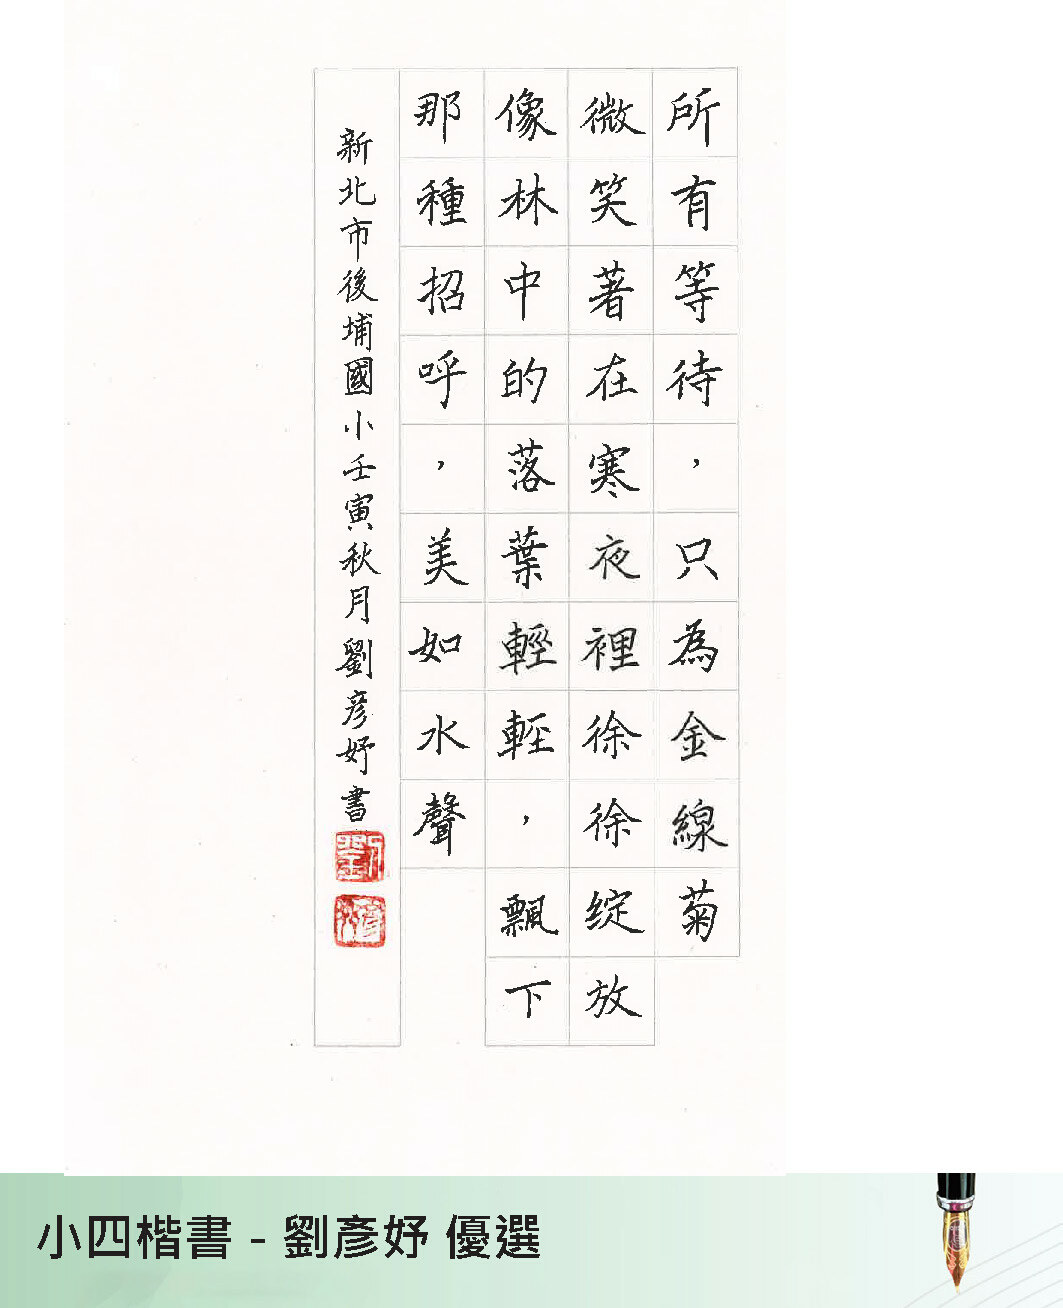 所有等待，只為金線菊
微笑著在寒夜裡徐徐綻放
像林中的落葉輕輕，飄下
那種招呼，美如水聲
新北市後埔國小壬寅秋月劉彥妤書
劉
小四楷書 - 劉彥妤 優選